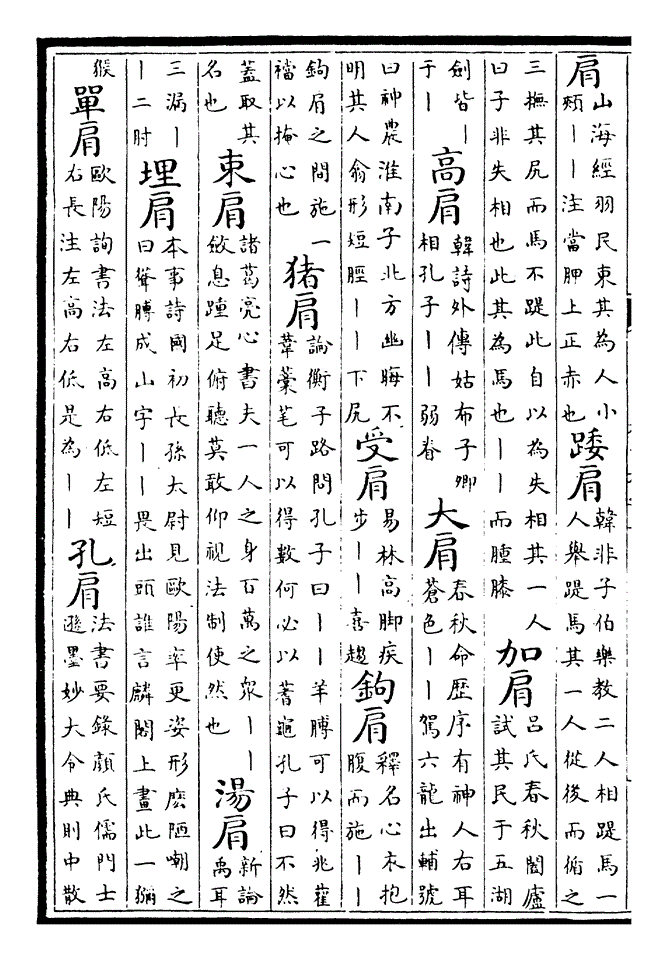 肩
山海經羽民東其為人小
頰丨丨注當胛上正赤也
踒肩
韓非子伯樂教二人相踶馬一
人舉踶馬其一人從後而循之
三撫其尻而馬不踶此自以為失相其一人
曰子非失相也此其為馬也丨丨而腫膝
加肩
呂氏春秋闔廬
試其民于五湖
劍皆丨
于丨
高肩
韓詩外傳姑布子卿
相孔子丨丨弱脊
大肩
春秋命歷序有神人右耳
蒼色丨丨駕六龍出輔號
曰神農淮南子北方幽晦不
明其人翕形短脛丨丨下尻
受肩
易林高脚疾
步丨丨喜趨
鉤肩
釋名心衣抱
腹而施丨丨
鉤肩之間施一
襠以掩心也
猪肩
論衡子路問孔子曰丨丨羊膊可以得兆雚
葦藁笔可以得數何必以蓍龜孔子曰不然
蓋取其
名也
束肩
諸葛亮心書夫一人之身百萬之衆丨丨
斂息踵足俯聽莫敢仰視法制使然也
湯肩
新論
禹耳
三漏丨
丨二肘
埋肩
本事詩國初長孫太尉見歐陽率更姿形麽陋嘲之
曰聳膊成山字丨丨畏出頭誰言麟閣上畫此一獼
猴
單肩
歐陽詢書法左高右低左短
右長注左高右低是為丨丨
孔肩
法書要錄顏氏儒門士
遜墨妙大令典則中散